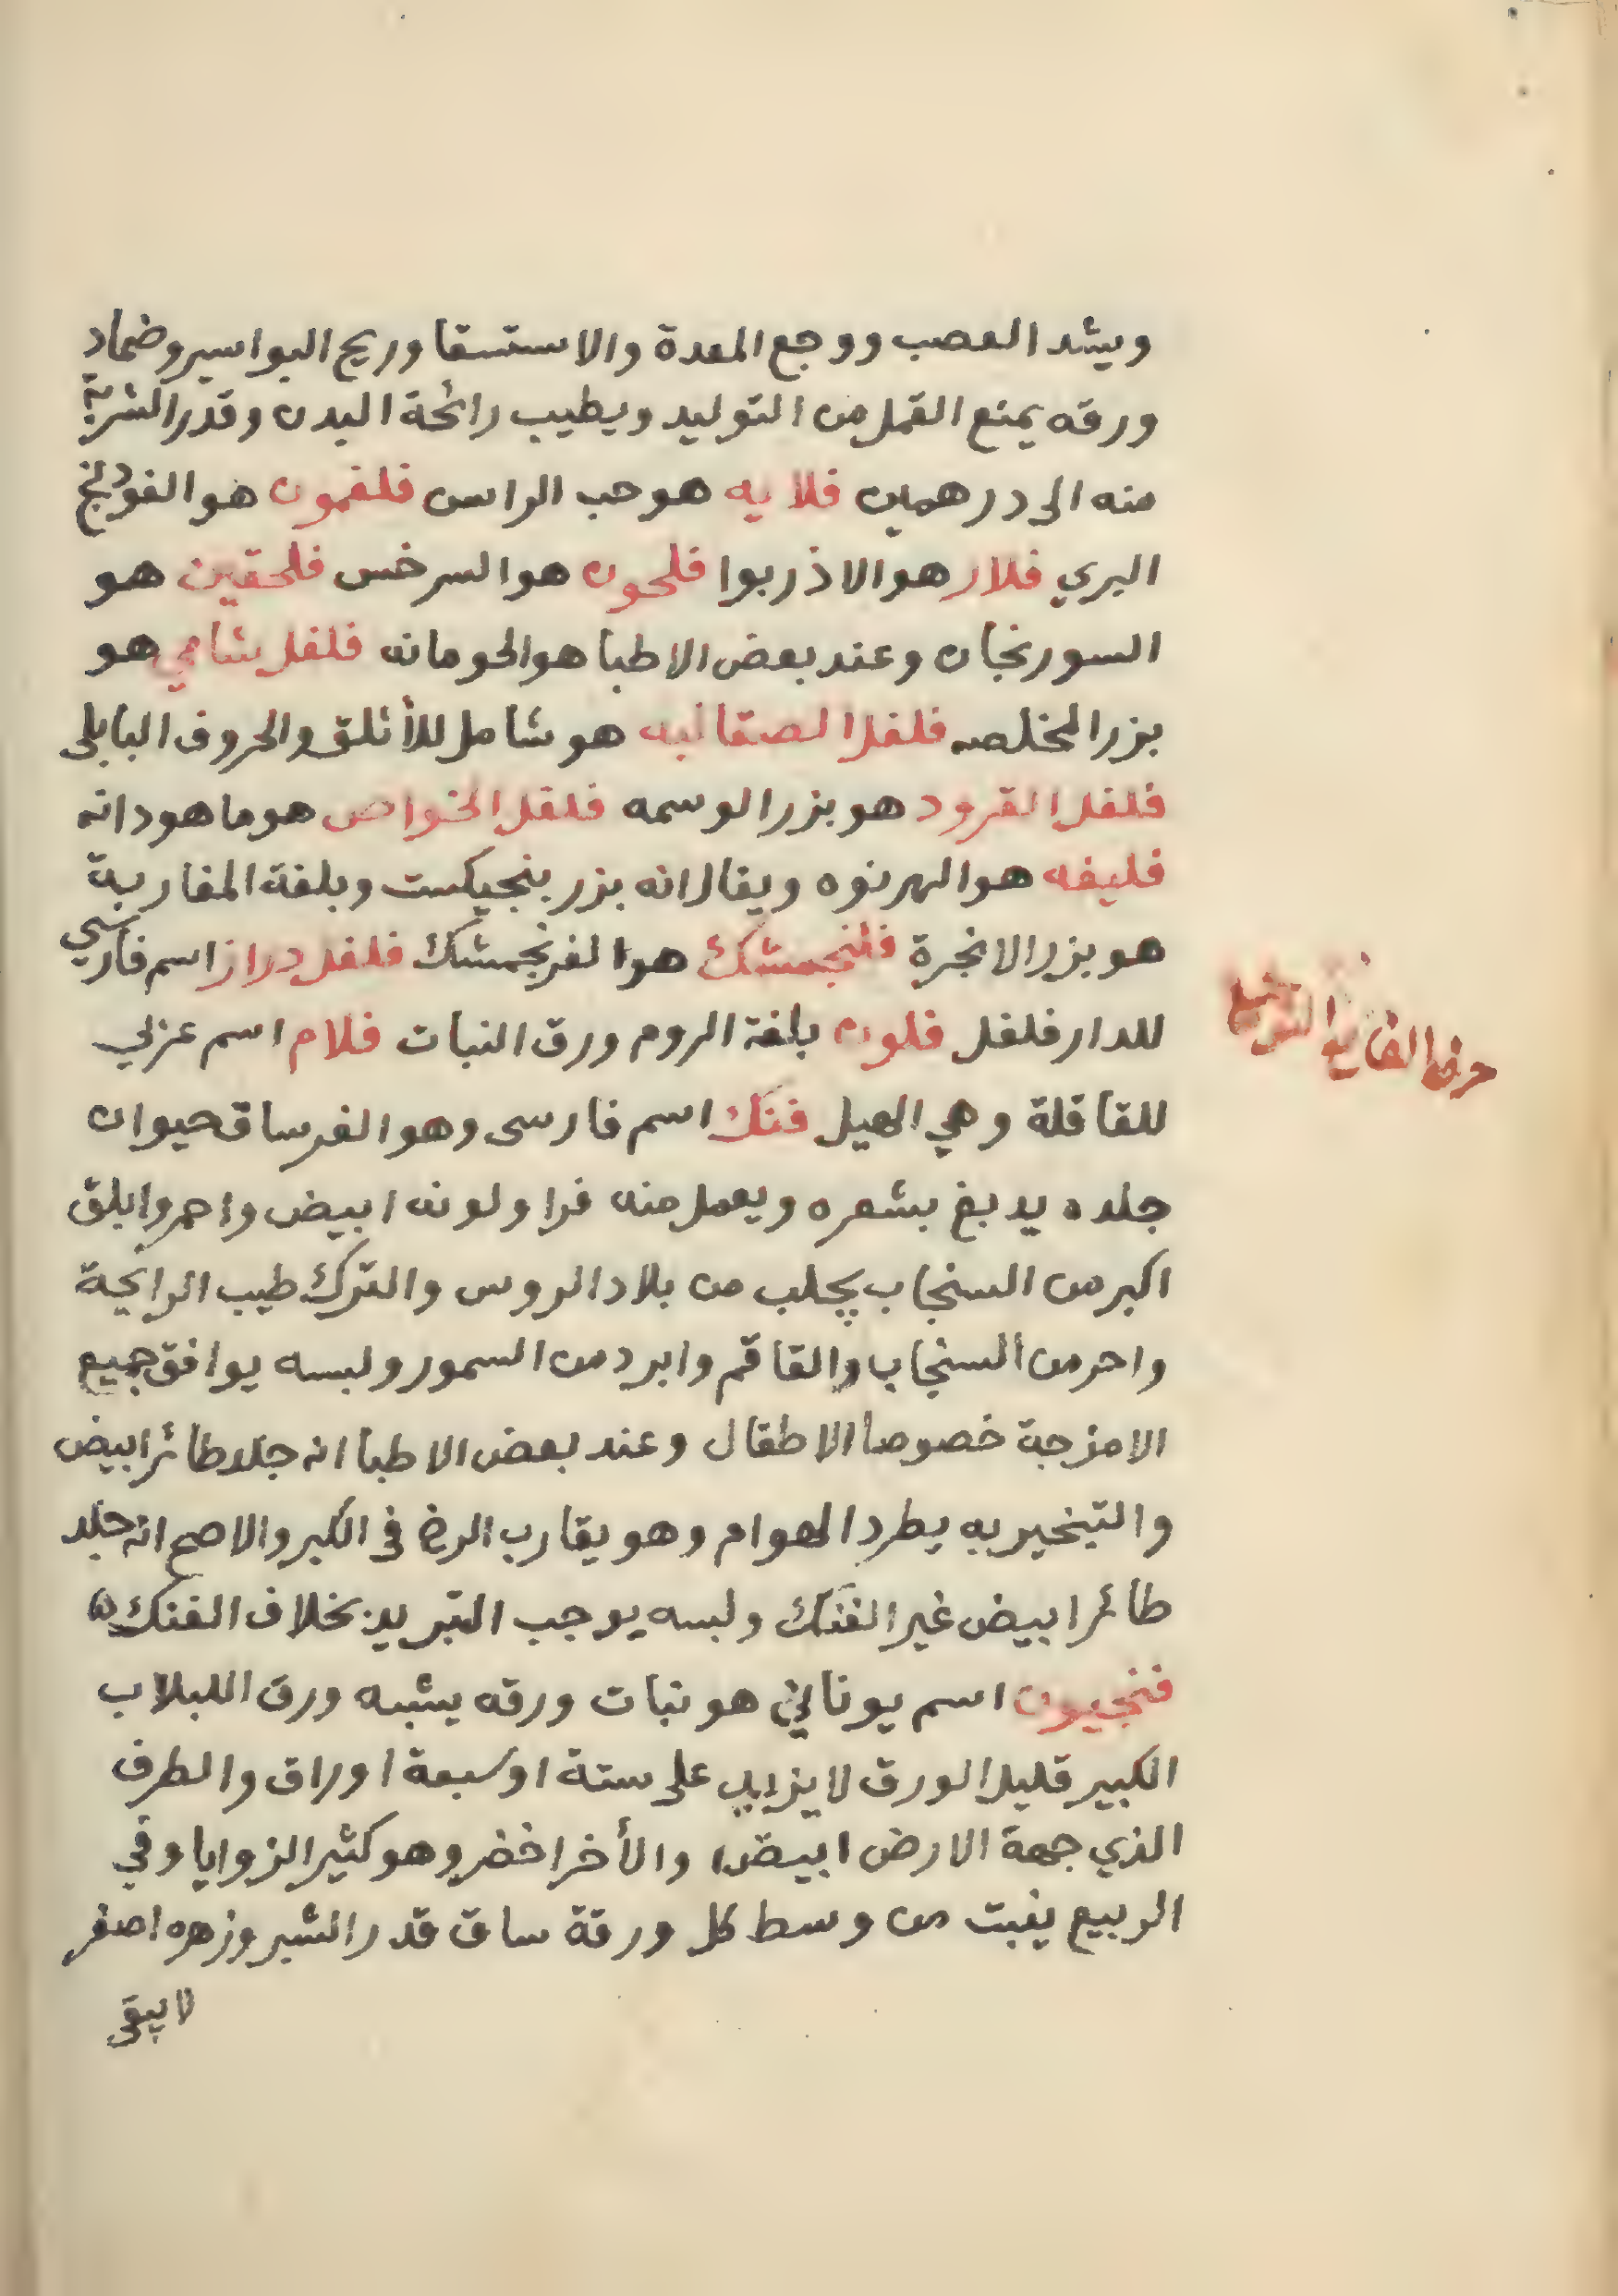 ويشد العصب ووجع المعدة والاستسقا وريح البواسير وضماد
ورقه يمنع القمل من التوليد ويطيب رائحة البدن وقدر الشربة
منه الى درهمين فلايه هو حب الراس فلغمون هو الفودنج
البري فلار هو الاذربوا فلحون هو السرخس فلحقين هو
السورنجان وعند بعض الاطبا هو الحومانه فلفل شامي هو
بزر المخلصه فلفل الصقالبه هو شامل للأثلق والخروف البابلى
فلفل القرود هو بزر الوسمه فلفل الخواص هو ماهودانه
فليفه هو الهرنوه ويقال انه بزر بنجيكست وبلغة المغاربة
هو بزر الانجرة فلنجمشك هو الفرنجمشك فلفل دراز اسم فارسي
للدارفلفل فلون بلغة الروم ورق النبات فلام اسم عزلي
للقاقلة وهي الهيل فنك اسم فارسى وهو الفرساق حيوان
جلده يدبغ بشعره ويعمل منه فرا ولونه ابيض واحمر وابلق
اكبر من السنجاب يجلب من بلاد الروس والترك طيب الرايحة
واحر من السنجاب والقاقم وابرد من السمور ولبسه يوافق جميع
الامزجة خصوصا الاطفال وعند بعض الاطبا انه جلد طائر ابيض
والتبخير به يطرد الهوام وهو يقارب الرخ فى الكبر والاصح انه جلد
طائر ابيض غير الفنك ولبسه يوجب التبريد بخلاف الفنك
فنجيون اسم يوناني هو نبات ورقه يشبه ورق اللبلاب
الكبير قليل الورق لا يزيد على ستة او سبعة اوراق والطرف
الذي جهة الارض ابيض والأخر اخضر وهو كثير الزوايا وفي
الربيع ينبت من وسط كل ورقة ساق قدر الشبر وزهره اصفر
لا يبقى
حرف الفا مع النون